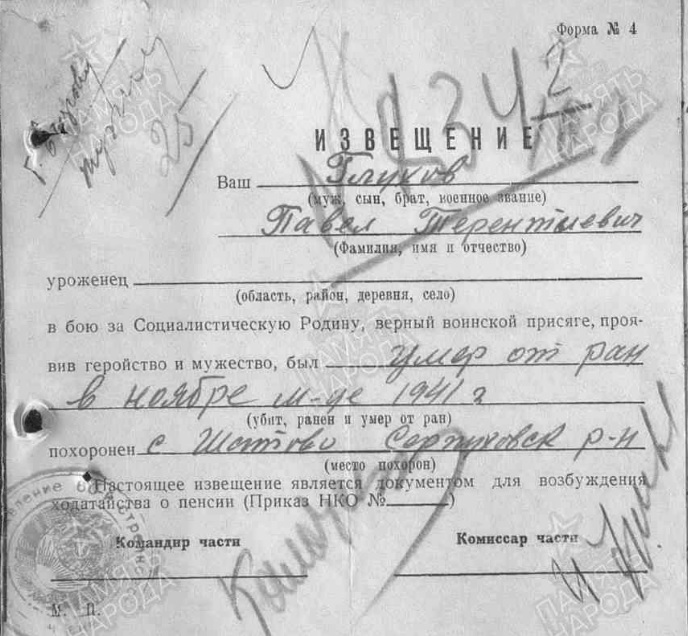 Форма № 4
25
ИЗВЕЩЕНИЕ
Ваш Глухов
(муж, сын, брат, военное звание)
Павел Терентиевич
(Фамилия, имя и отчество)
уроженец
(область, район, деревня, село)
в бою за Социалистическую Родину, верный воинской присяге, проя-
вив геройство и мужество, был умер от ран
в ноябре м-це 1941 г
(убит, ранен и умер от ран)
похоронен с Шатово Серпуховск р-н
(место похорон)
Настоящее извещение является документом для возбуждения
ходатайства о пенсии (Приказ НКО № )
Командир части
Комиссар части
М. П.
ПАМЯТЬ НАРОДА